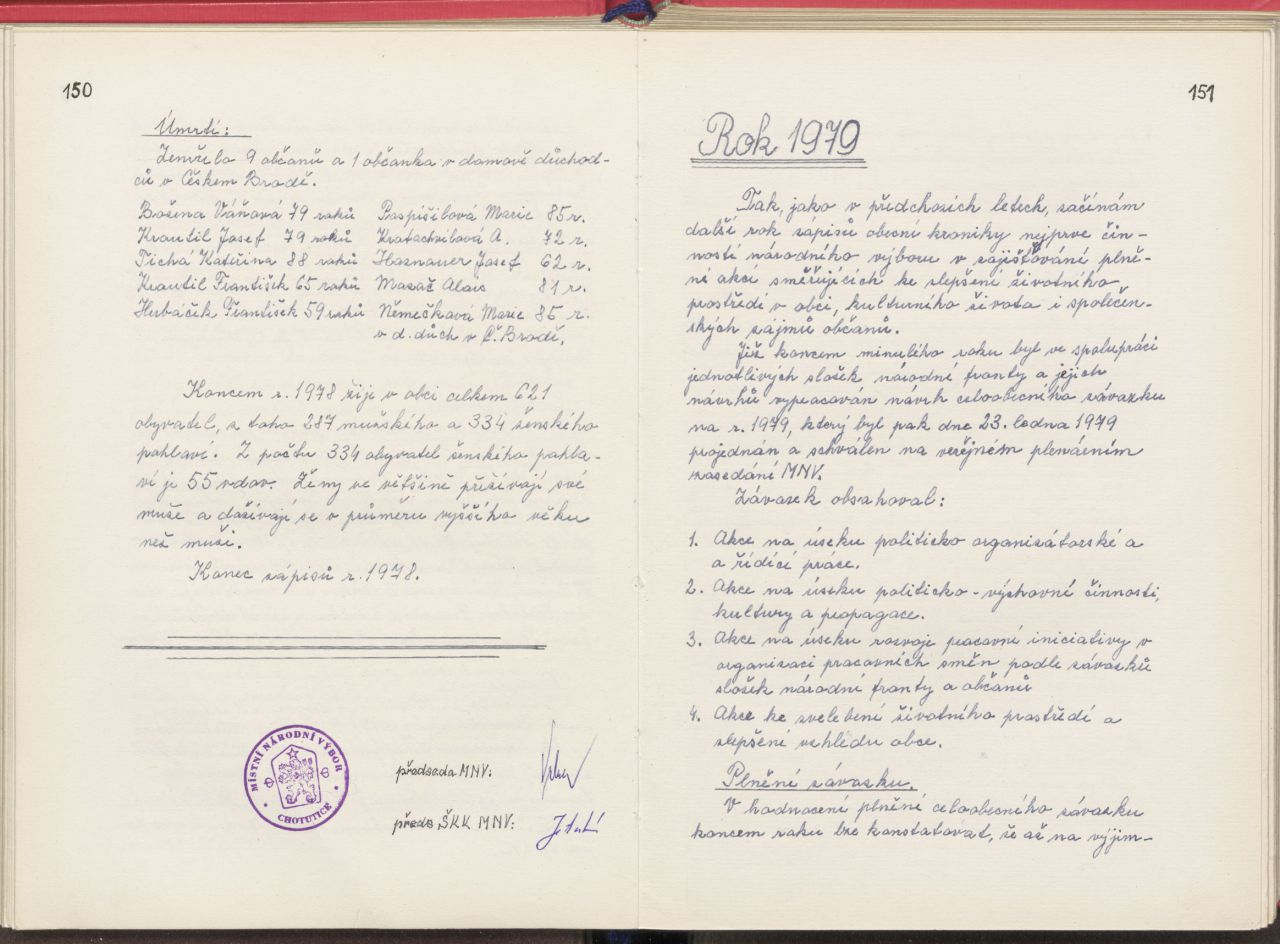 150
Úmrtí:
Zemřelo 9 občanů a 1 občanka v domově důchod-
ců v Českém Brodě.
Božena Váňová 79 roků Pospíšilová Marie 85 r.
Krautil Josef 79 roků Kratochvílová A. 72 r.
Tichá Kateřina 88 roků Haznauer Josef 62 r.
Krautil František 65 roků Mazač Alois 81 r.
Hrbáček František 59 roků Němečková Marie 85 r.
v d. důch v Č. Brodě.
Koncem r. 1978 žije v obci celkem 621
obyvatel, z toho 287 mužského a 334 ženského
pohlaví. Z počtu 334 obyvatel ženského pohla-
ví je 55 vdov. Ženy ve většině přežívají své
muže a dožívají se v průměru vyššího věku
než muži.
Konec zápisů r. 1978.
MÍSTNÍ NÁRODNÍ VÝBOR
CHOTUTICE
předseda MNV:
předs. ŠKK MNV:
151
Rok 1979
Tak, jako v předchozích letech, začínám
další rok zápisů obecní kroniky nejprve čin-
ností národního výboru v zajišťování plně-
ní akcí směřujících ke zlepšení životního
prostředí v obci, kulturního života i společen-
ských zájmů občanů.
Již koncem minulého roku byl ve spolupráci
jednotlivých složek národní fronty a jejich
návrhů vypracován návrh celoobecního závazku
na r. 1979, který byl pak dne 23. ledna 1979
projednán a schválen na veřejném plenárním
zasedání MNV.
Závazek obsahoval:
1. Akce na úseku politicko organizátorské a
a řídící práce.
2. Akce na úseku politicko - výchovné činnosti,
kultury a propagace.
3. Akce na úseku rozvoje pracovní iniciativy v
organizaci pracovních směn podle závazků
složek národní fronty a občanů
4. Akce ke zvelebení životního prostředí a
zlepšení vzhledu obce.
Plnění závazku.
V hodnocení plnění celoobecního závazku
koncem roku lze konstatovat, že až na výjim-